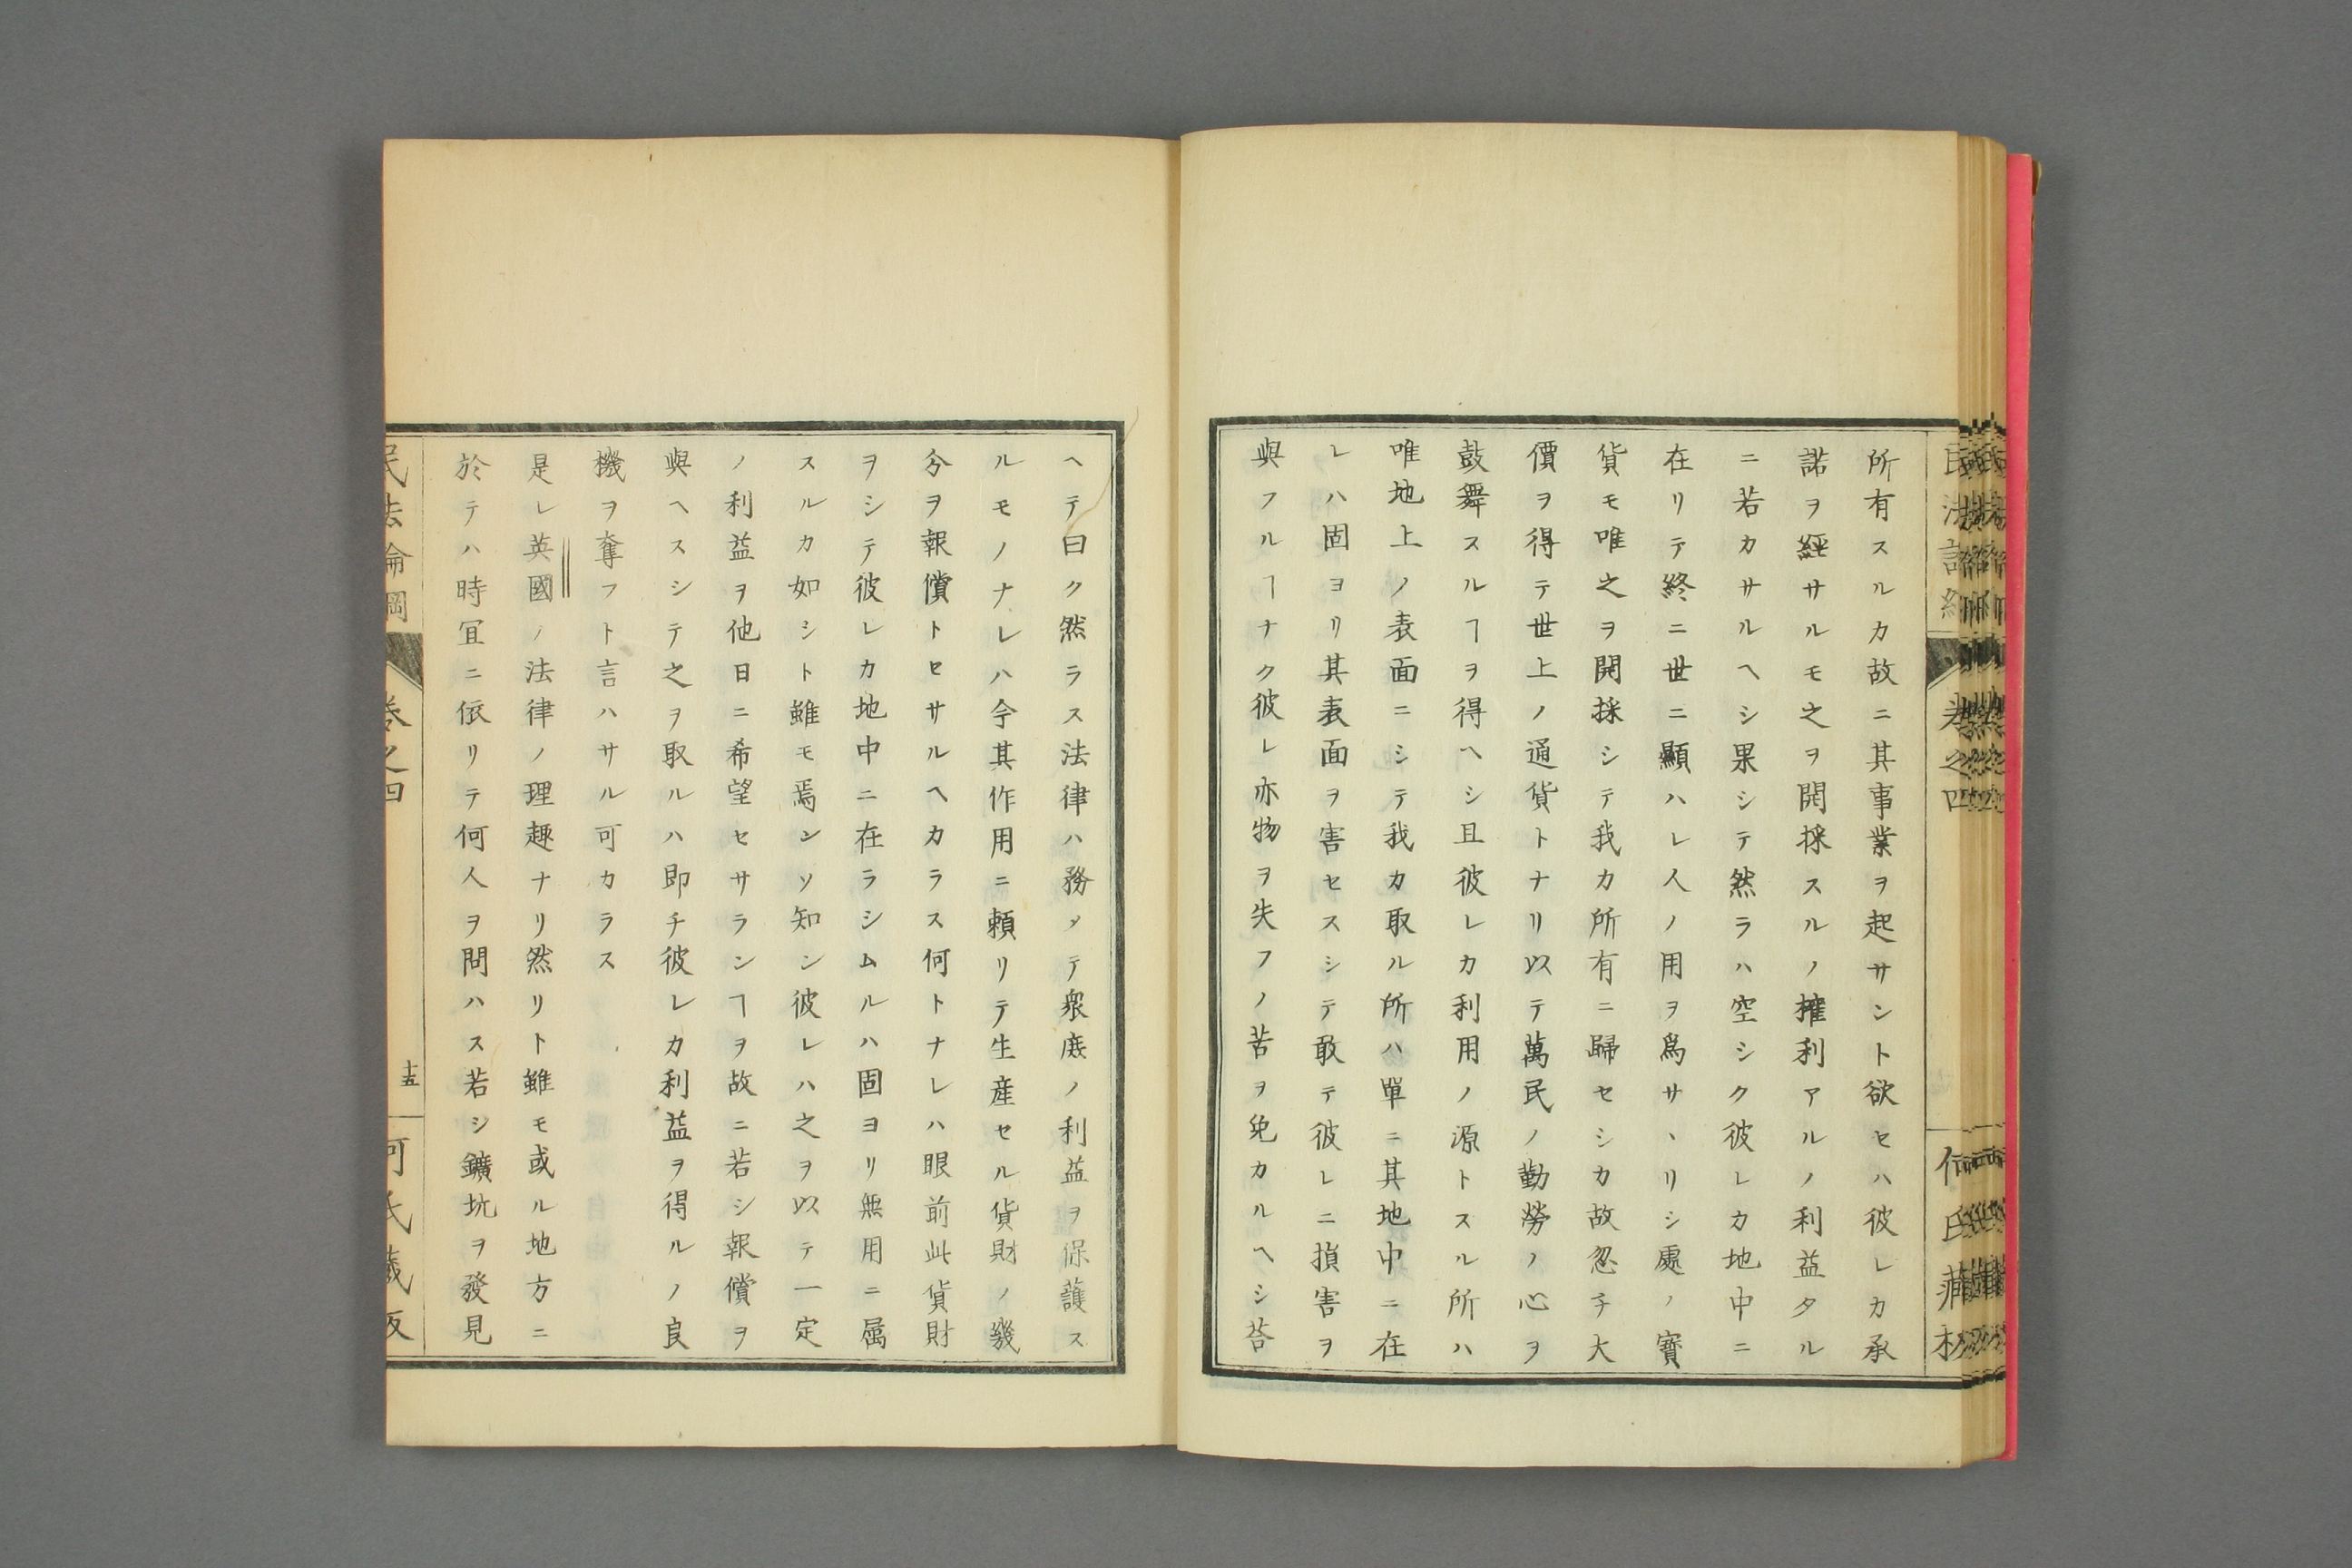 所有スルカ故ニ其事業ヲ起サント欲セハ彼レカ承
諾ヲ經サルモ之ヲ開採スルノ權利アルノ利益タル
ニ若カサルヘシ果シテ然ラハ空シク彼レカ地中ニ
在リテ終ニ世ニ顯ハレ人ノ用ヲ爲サヽリシ處ノ寶
貨モ唯之ヲ開採シテ我カ所有ニ歸セシカ故忽チ大
價ヲ得テ世上ノ通貨トナリ以テ萬民ノ勤勞ノ心ヲ
鼓舞スルヿヲ得ヘシ且彼レカ利用ノ源トスル所ハ
唯地上ノ表面ニシテ我カ取ル所ハ單ニ其地中ニ在
レハ固ヨリ其表面ヲ害セスシテ敢テ彼レニ損害ヲ
與フルヿナク彼レ亦物ヲ失フノ苦ヲ免カルヘシ荅
ヘテ曰ク然ラス法律ハ務メテ衆庶ノ利益ヲ保護ス
ルモノナレハ今其作用ニ頼リテ生産セル貨財ノ幾
分ヲ報償トセサルヘカラス何トナレハ眼前此貨財
ヲシテ彼レカ地中ニ在ラシムルハ固ヨリ無用ニ属
スルカ如シト雖モ焉ンソ知ン彼レハ之ヲ以テ一定
ノ利益ヲ他日ニ希望セサランヿヲ故ニ若シ報償ヲ
與ヘスシテ之ヲ取ルハ即チ彼レカ利益ヲ得ルノ良
機ヲ奪フト言ハサル可カラス
是レ英國ノ法律ノ理趣ナリ然リト雖モ或ル地方ニ
於テハ時冝ニ依リテ何人ヲ問ハス若シ鑛坑ヲ發見
民法論綱
卷之四
十五
何氏藏版